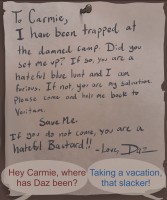 To Carmie,
I have been trapped at
the damned camp. Did you
set me up? If so, you are a
hateful blue and I am
furious. If not, you are my salvation.
Please come and help me back to
Veritam.
Save Me.
If you do not come, you are a
hateful Bastard!! -Love, Daz
Hey Carmie, where
has Daz been?
Taking a vacation,
that slacker!